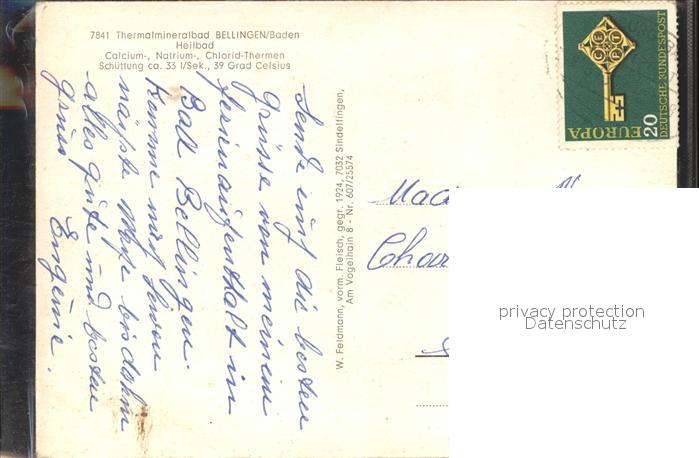 7841 Thermalmineralbad BELLINGEN/Baden
Heilbad
Calcium-, Natrium-, Chlorid-Thermen
Schüttung ca. 33 l/Sek., 39 Grad Celsius
Sende euch die besten
grüsse von meinem
ferienaufenthalt in
Bad Bellingen.
Komme euch
näxste bisdahin
alles gute und besten
gruss Eugenie.
W. Feldmann, vorm. Fleisch, gegr. 1924, 7032 Sindelfingen,
Am Vogelhain 8 - Nr. 607/25574
20
EUROPA
DEUTSCHE BUNDESPOST
CEPT
Mad
Char
privacy protection
Datenschutz